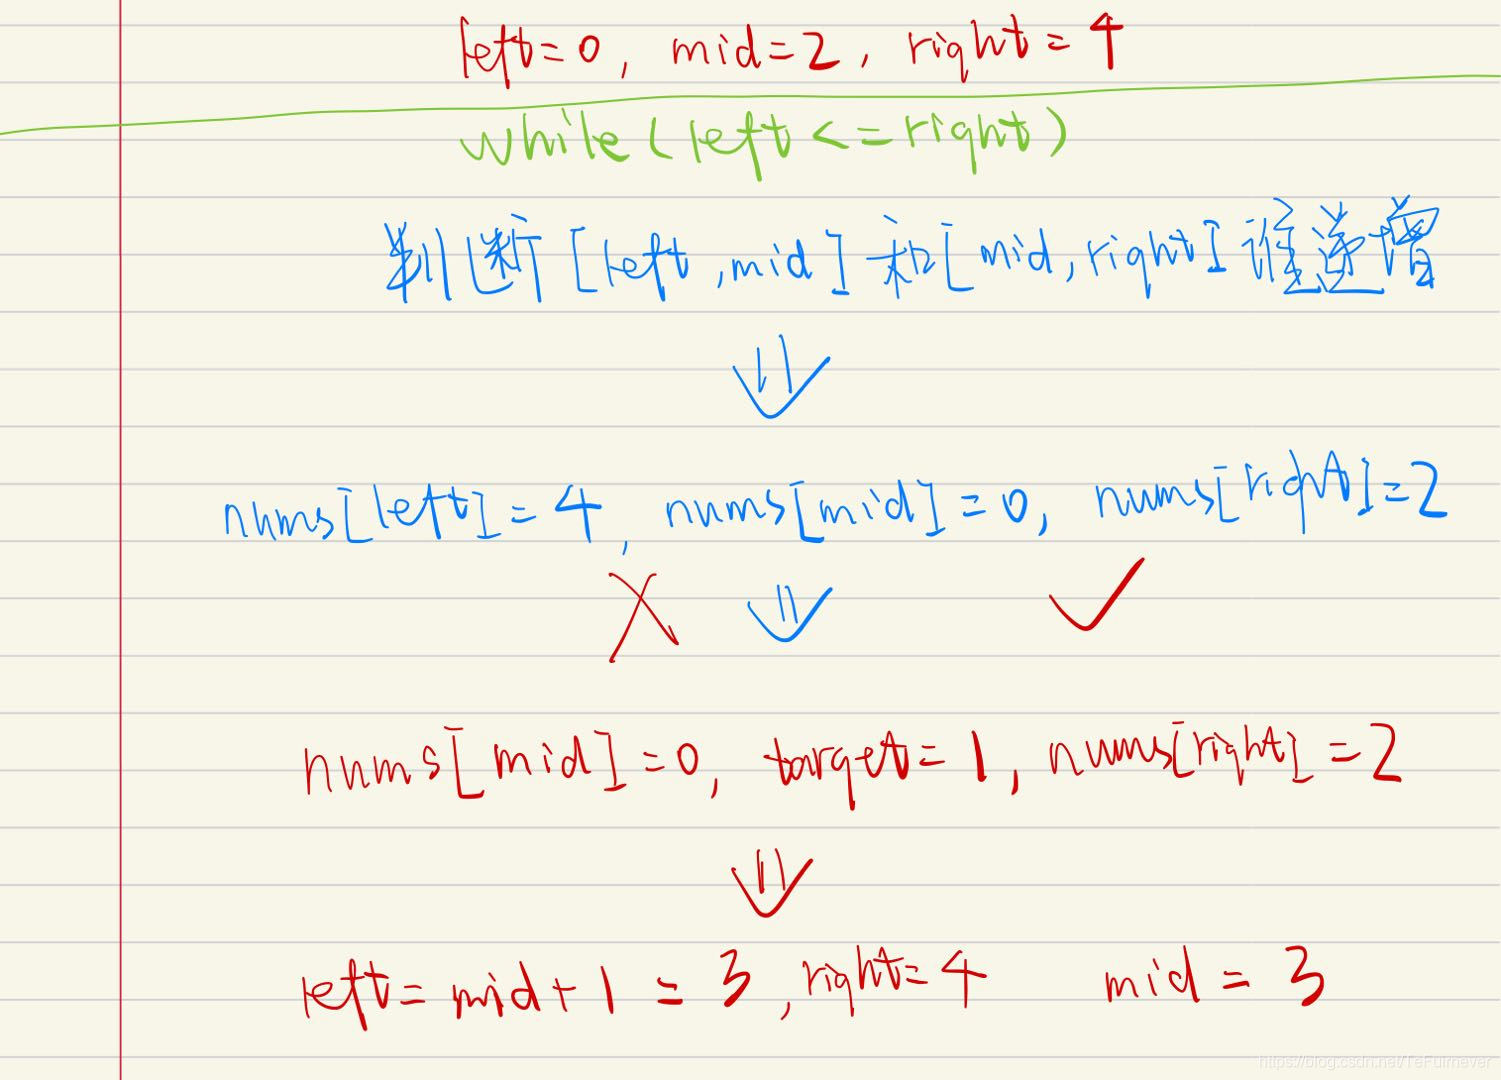 left=0, mid=2, right=4
while(left<=right)
判断[left,mid]和[mid,right]谁递增
nums[left]=4, nums[mid]=0, nums[right]=2
nums[mid]=0, target=1, nums[right]=2
left=mid+1=3, right=4 mid=3
https://blog.csdn.net/TeFuirnever